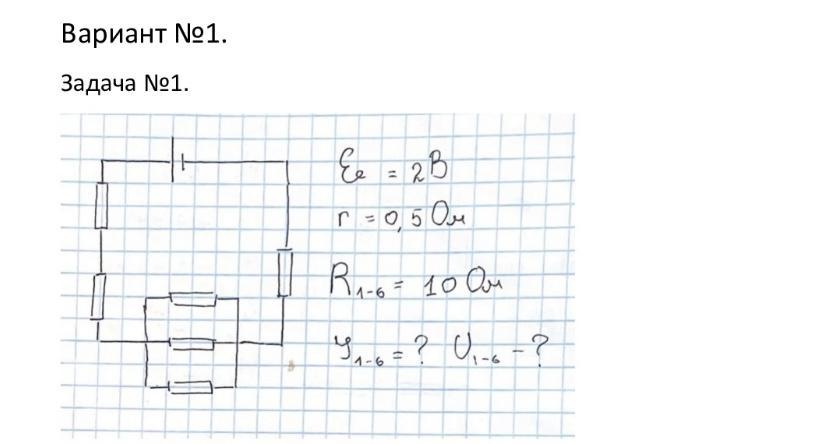 Вариант №1.
Задача №1.
Ɛe = 2В
r = 0,5 Ом
R₁₋₆ = 10 Ом
У₁₋₆ = ? U₁₋₆ - ?